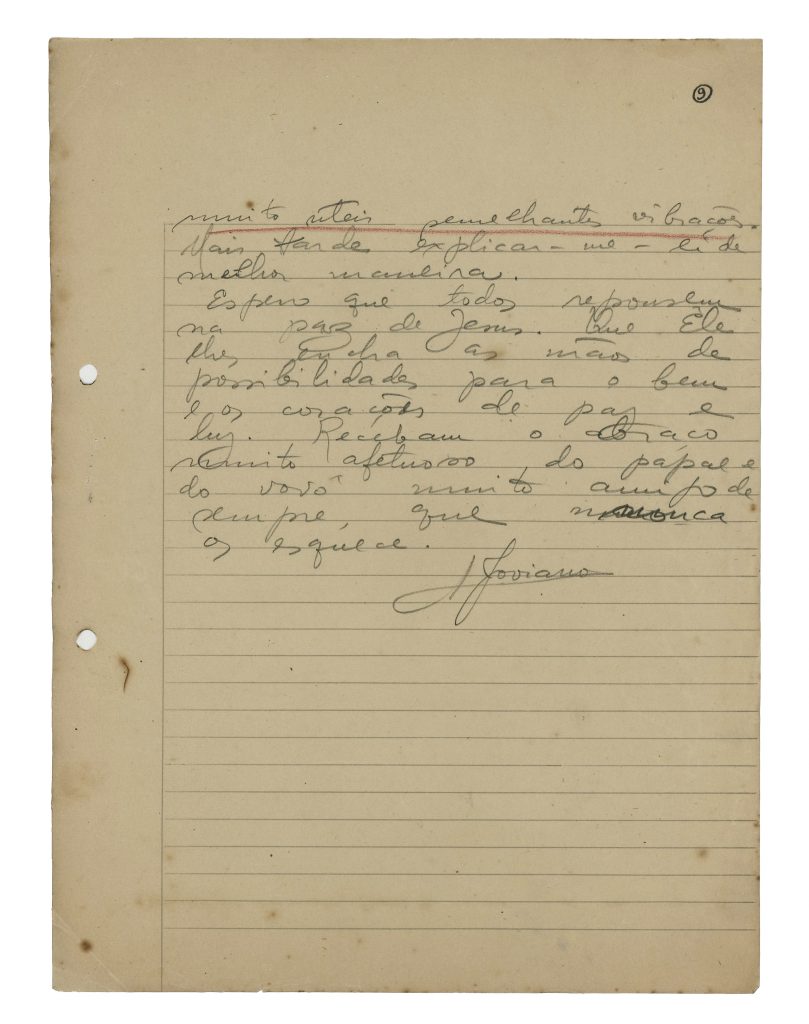 9
muito uteis semelhantes vibrações.
Mais tarde explicar-me-ei de
melhor maneira.
Espero que todos repousem
na paz de Jesus. Que Ele
lhes encha as mãos de
possibilidades para o bem
e os corações de paz e
luz. Recebam o abraço
muito afetuoso do papae e
do vovô muito amigo de
sempre, que nunca
os esquece.
A Joviano